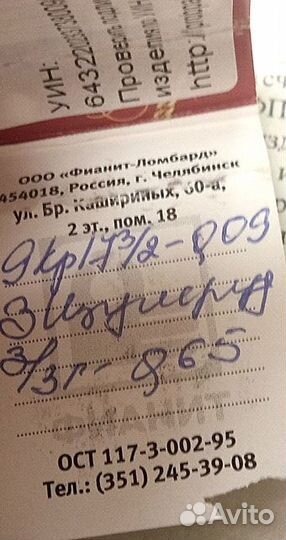 УИН:
Проверь
изделия
http://
ООО «Фианит-Ломбард»
454018, Россия, г. Челябинск
ул. Бр. Кашириных, 60-а,
2 эт., пом. 18
9 кр 17 3/2 - 0,09
3 Изумруд
3/3г - 0,65
ФИАНИТ
ОСТ 117-3-002-95
Тел.: (351) 245-39-08
Avito